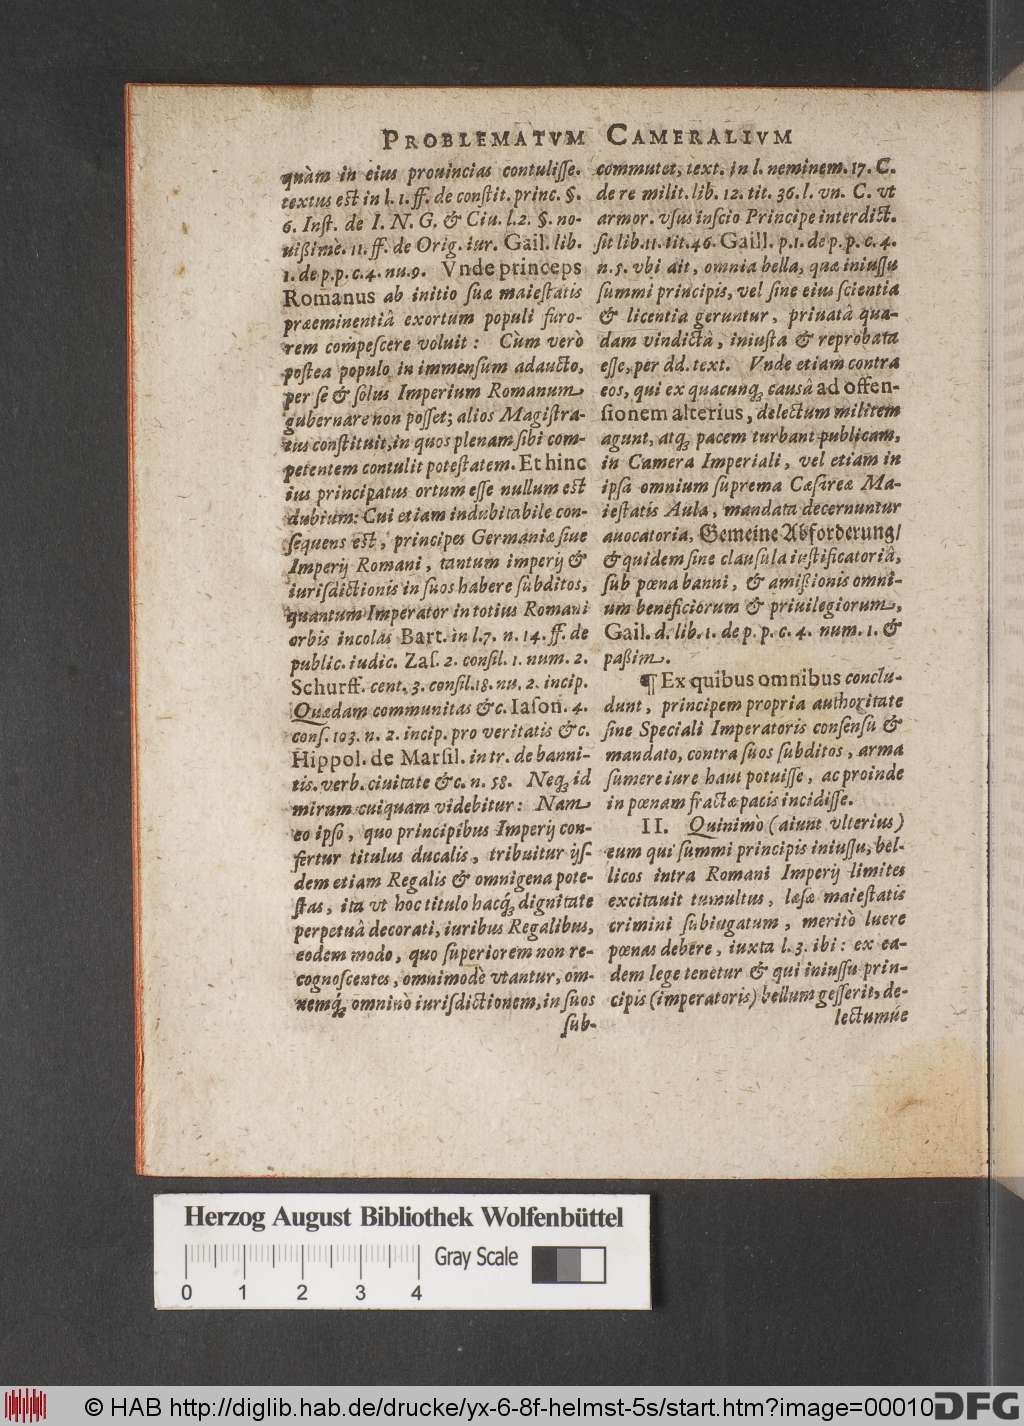 PROBLEMATVM CAMERALIVM
quàm in eius prouincias contulisse.
textus est in l. 1. ff. de constit. princ. §.
6. Inst. de I. N. G. & Ciu. l. 2. §. no-
uißimè. 11. ff. de Orig. iur. Gail. lib.
1. de p. p. c. 4. nu. 9. Vnde princeps
Romanus ab initio suæ maiestatis
præeminentiâ exortum populi furo-
rem compescere voluit : Cùm verò
postea populo in immensum adaucto,
per se & solus Imperium Romanum
gubernare non posset; alios Magistra-
tus constituit, in quos plenam sibi com-
petentem contulit potestatem. Et hinc
ius principatus ortum esse nullum est
dubium: Cui etiam indubitabile con-
sequens est, principes Germaniæ siue
Imperij Romani, tantum imperij &
iurisdictionis in suos habere subditos,
quantum Imperator in totius Romani
orbis incolas Bart. in l. 7. n. 14. ff. de
public. iudic. Zas. 2. consil. 1. num. 2.
Schurff. cent. 3. consil. 18. nu. 2. incip.
Quædam communitas &c. Iason. 4.
cons. 103. n. 2. incip. pro veritatis &c.
Hippol. de Marsil. in tr. de banni-
tis. verb. ciuitate &c. n. 58. Neq; id
mirum cuiquam videbitur: Nam
eo ipso, quo principibus Imperij con-
fertur titulus ducalis, tribuitur ijs-
dem etiam Regalis & omnigena pote-
stas, ita vt hoc titulo hacq́; dignitate
perpetuâ decorati, iuribus Regalibus,
eodem modo, quo superiorem non re-
cognoscentes, omnimodè vtantur, om-
nemq́; omninò iurisdictionem, in suos
sub-
commutet, text. in l. neminem. 17. C.
de re milit. lib. 12. tit. 36. l. vn. C. vt
armor. vsus inscio Principe interdict.
sit lib. 11. tit. 46. Gaill. p. 1. de p. p. c. 4.
n. 5. vbi ait, omnia bella, quæ iniussu
summi principis, vel sine eius scientia
& licentia geruntur, priuatâ qua-
dam vindictâ, iniusta & reprobata
esse, per dd. text. Vnde etiam contra
eos, qui ex quacunq; causâ ad offen-
sionem alterius, delectum militem
agunt, atq; pacem turbant publicam,
in Camera Imperiali, vel etiam in
ipsa omnium suprema Cæsareæ Ma-
iestatis Aula, mandata decernuntur
auocatoria, Gemeine Abforderung/
& quidem sine clausula iustificatoriâ,
sub pœna banni, & amißionis omni-
um beneficiorum & priuilegiorum,
Gail. d. lib. 1. de p. p. c. 4. num. 1. &
paßim.
¶ Ex quibus omnibus conclu-
dunt, principem propria authoritate
sine Speciali Imperatoris consensu &
mandato, contra suos subditos, arma
sumere iure haut potuisse, ac proinde
in pœnam fractæ pacis incidisse.
II. Quinimò (aiunt vlterius)
eum qui summi principis iniussu, bel-
licos intra Romani Imperij limites
excitauit tumultus, læsæ maiestatis
crimini subiugatum, meritò luere
pœnas debere, iuxta l. 3. ibi: ex ea-
dem lege tenetur & qui iniussu prin-
cipis (imperatoris) bellum gesserit, de-
lectumúe
Herzog August Bibliothek Wolfenbüttel
Gray Scale
0 1 2 3 4
© HAB http://diglib.hab.de/drucke/yx-6-8f-helmst-5s/start.htm?image=00010
DFG